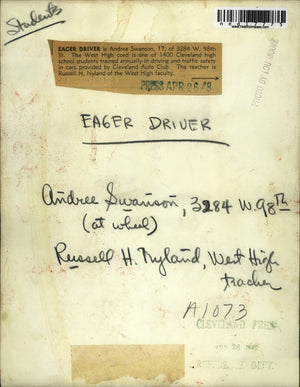 Students
EAGER DRIVER is Andree Swanson, 17, of 3284 W. 98th
St. The West High coed is one of 1400 Cleveland high
school students trained annually in driving and traffic safety
in cars provided by Cleveland Auto Club. The teacher is
Russell H. Nyland of the West High faculty.
PRESS APR 26 48
PHOTO BY LOU MOORE
EAGER DRIVER
Andree Swanson, 3284 W. 98th
(at wheel)
Russell H. Nyland, West High
teacher
A1073
CLEVELAND PRESS
REFERENCE DEPT.